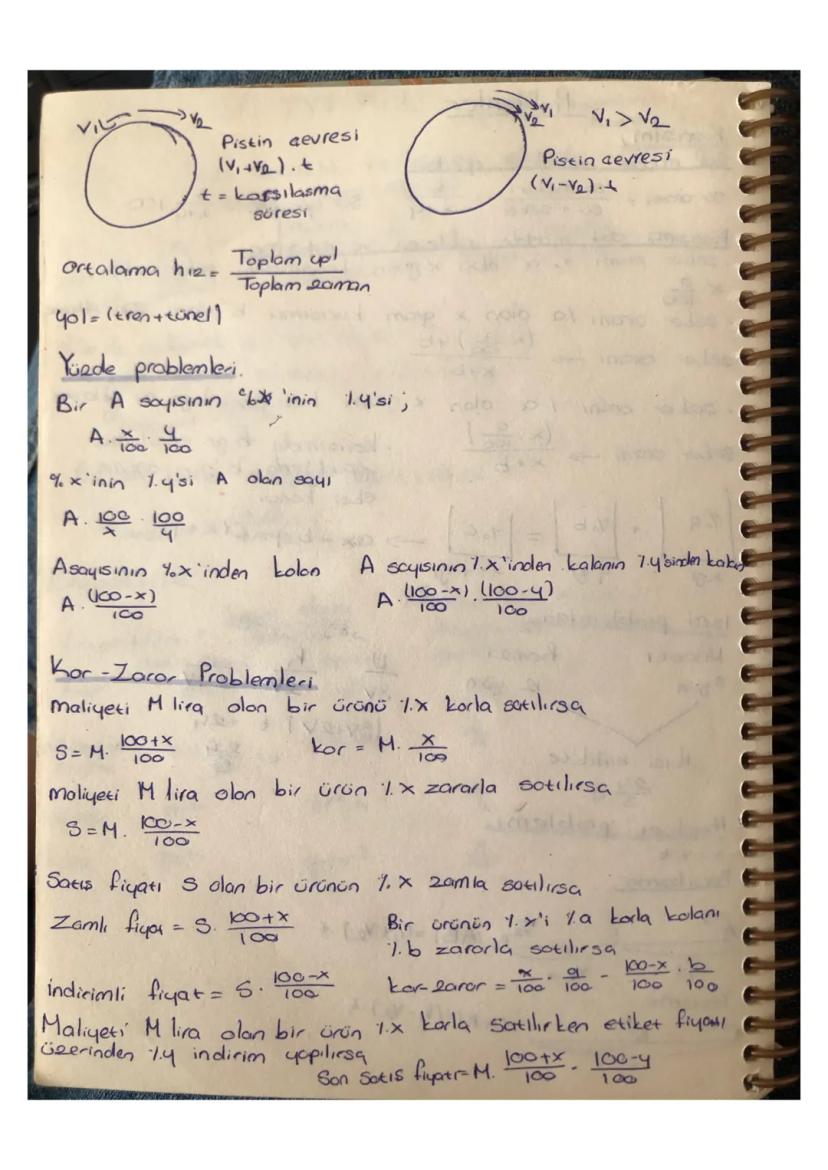 V₁ V₂
Pistin çevresi
(V₁+V₂).t
t = karşılaşma
süresi
V₂ V₁ V₁ > V₂
Pistin çevresi
(V₁-V₂).t
Ortalama hız = Toplam yol / Toplam zaman
yol = (tren+tünel)
Yüzde problemleri.
Bir A sayısının %x 'inin %y'si ;
A . x/100 . y/100
% x'inin %y'si A olan sayı
A . 100/x . 100/y
A sayısının %x'inden kalan
A . (100-x)/100
A sayısının %x'inden kalanın %y'sinden kalan
A . (100-x)/100 . (100-y)/100
Kar-Zarar Problemleri
Maliyeti M lira olan bir ürünü %x karla satılırsa
S = M. 100+x/100 kar = M. x/100
maliyeti M lira olan bir ürün %x zararla satılırsa
S = M. 100-x/100
Satış fiyatı S olan bir ürünün %x zamla satılırsa
Zamlı fiyat = S. 100+x/100
indirimli fiyat = S. 100-x/100
Bir ürünün %x'i %a karla kalanı
%b zararla satılırsa
kar-zarar = x/100 . a/100 - 100-x/100 . b/100
Maliyeti M lira olan bir ürün %x karla satılırken etiket fiyatı
üzerinden %y indirim yapılırsa
Son satış fiyatı = M. 100+x/100 . 100-y/100